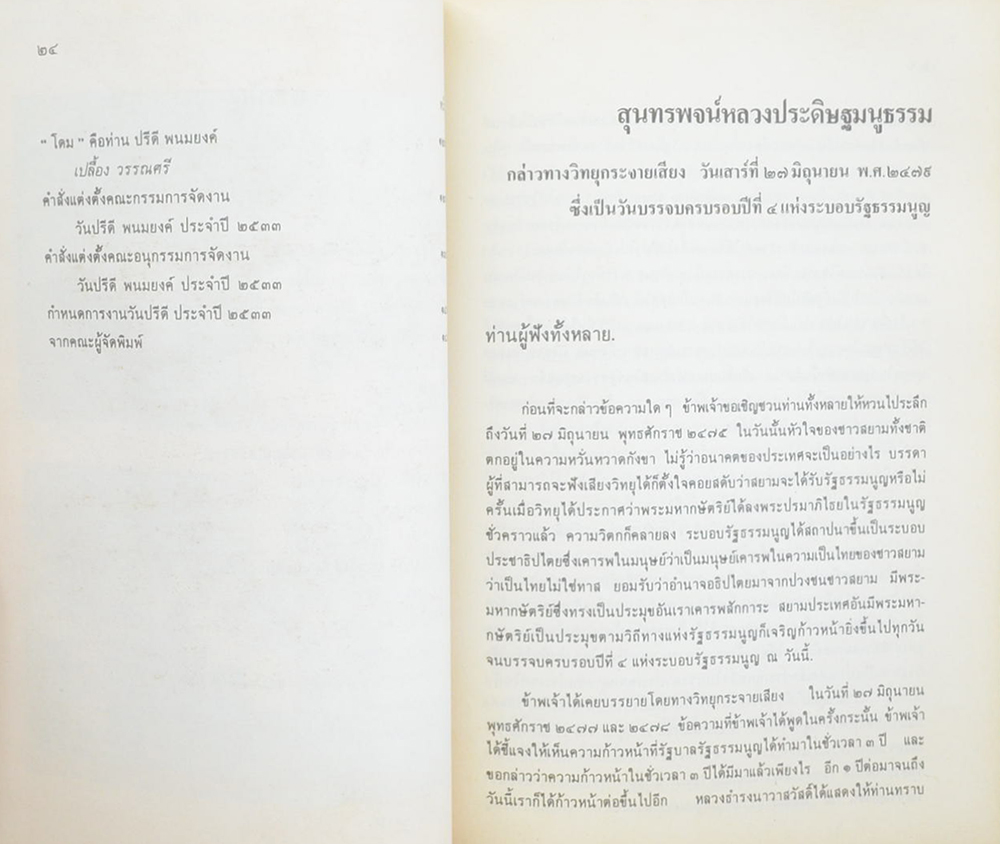 ๒๔
“ โดม ” คือท่าน ปรีดี พนมยงค์
เปลื้อง วรรณศรี
คำสั่งแต่งตั้งคณะกรรมการจัดงาน
วันปรีดี พนมยงค์ ประจำปี ๒๕๓๓
คำสั่งแต่งตั้งคณะอนุกรรมการจัดงาน
วันปรีดี พนมยงค์ ประจำปี ๒๕๓๓
กำหนดการงานวันปรีดี ประจำปี ๒๕๓๓
จากคณะผู้จัดพิมพ์
สุนทรพจน์หลวงประดิษฐมนูธรรม
กล่าวทางวิทยุกระงายเสียง วันเสาร์ที่ ๒๗ มิถุนายน พ.ศ.๒๔๗๙
ซึ่งเป็นวันบรรจบครบรอบปีที่ ๔ แห่งระบอบรัฐธรรมนูญ
ท่านผู้ฟังทั้งหลาย.
ก่อนที่จะกล่าวข้อความใด ๆ ข้าพเจ้าขอเชิญชวนท่านทั้งหลายให้หวนไประลึก
ถึงวันที่ ๒๗ มิถุนายน พุทธศักราช ๒๔๗๕ ในวันนั้นหัวใจของชาวสยามทั้งชาติ
ตกอยู่ในความหวั่นหวาดกังขา ไม่รู้ว่าอนาคตของประเทศจะเป็นอย่างไร บรรดา
ผู้ที่สามารถจะฟังเสียงวิทยุได้ก็ตั้งใจคอยสดับว่าสยามจะได้รับรัฐธรรมนูญหรือไม่
ครั้นเมื่อวิทยุได้ประกาศว่าพระมหากษัตริย์ได้ลงพระปรมาภิไธยในรัฐธรรมนูญ
ชั่วคราวแล้ว ความวิตกก็คลายลง ระบอบรัฐธรรมนูญได้สถาปนาขึ้นเป็นระบอบ
ประชาธิปไตยซึ่งเคารพในมนุษย์ว่าเป็นมนุษย์เคารพในความเป็นไทยของชาวสยาม
ว่าเป็นไทยไม่ใช่ทาส ยอมรับว่าอำนาจอธิปไตยมาจากปวงชนชาวสยาม มีพระ-
มหากษัตริย์ซึ่งทรงเป็นประมุขอันเราเคารพสักการะ สยามประเทศอันมีพระมหา-
กษัตริย์เป็นประมุขตามวิถีทางแห่งรัฐธรรมนูญก็เจริญก้าวหน้ายิ่งขึ้นไปทุกวัน
จนบรรจบครบรอบปีที่ ๔ แห่งระบอบรัฐธรรมนูญ ณ วันนี้.
ข้าพเจ้าได้เคยบรรยายโดยทางวิทยุกระจายเสียง ในวันที่ ๒๗ มิถุนายน
พุทธศักราช ๒๔๗๗ และ ๒๔๗๘ ข้อความที่ข้าพเจ้าได้พูดในครั้งกระนั้น ข้าพเจ้า
ได้ชี้แจงให้เห็นความก้าวหน้าที่รัฐบาลรัฐธรรมนูญได้ทำมาในชั่วเวลา ๓ ปี และ
ขอกล่าวว่าความก้าวหน้าในชั่วเวลา ๓ ปีได้มีมาแล้วเพียงไร อีก ๑ ปีต่อมาจนถึง
วันนี้เราก็ได้ก้าวหน้าต่อขึ้นไปอีก หลวงธำรงนาวาสวัสดิ์ได้แสดงให้ท่านทราบ